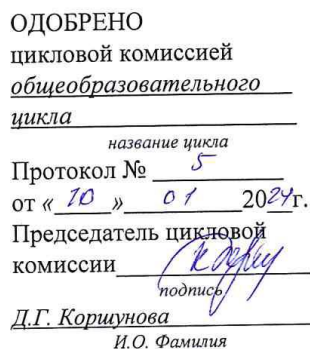 ОДОБРЕНО
цикловой комиссией
общеобразовательного
цикла
название цикла
Протокол № 5
от «10» 01 2024г.
Председатель цикловой
комиссии
подпись
Д.Г. Коршунова
И.О. Фамилия